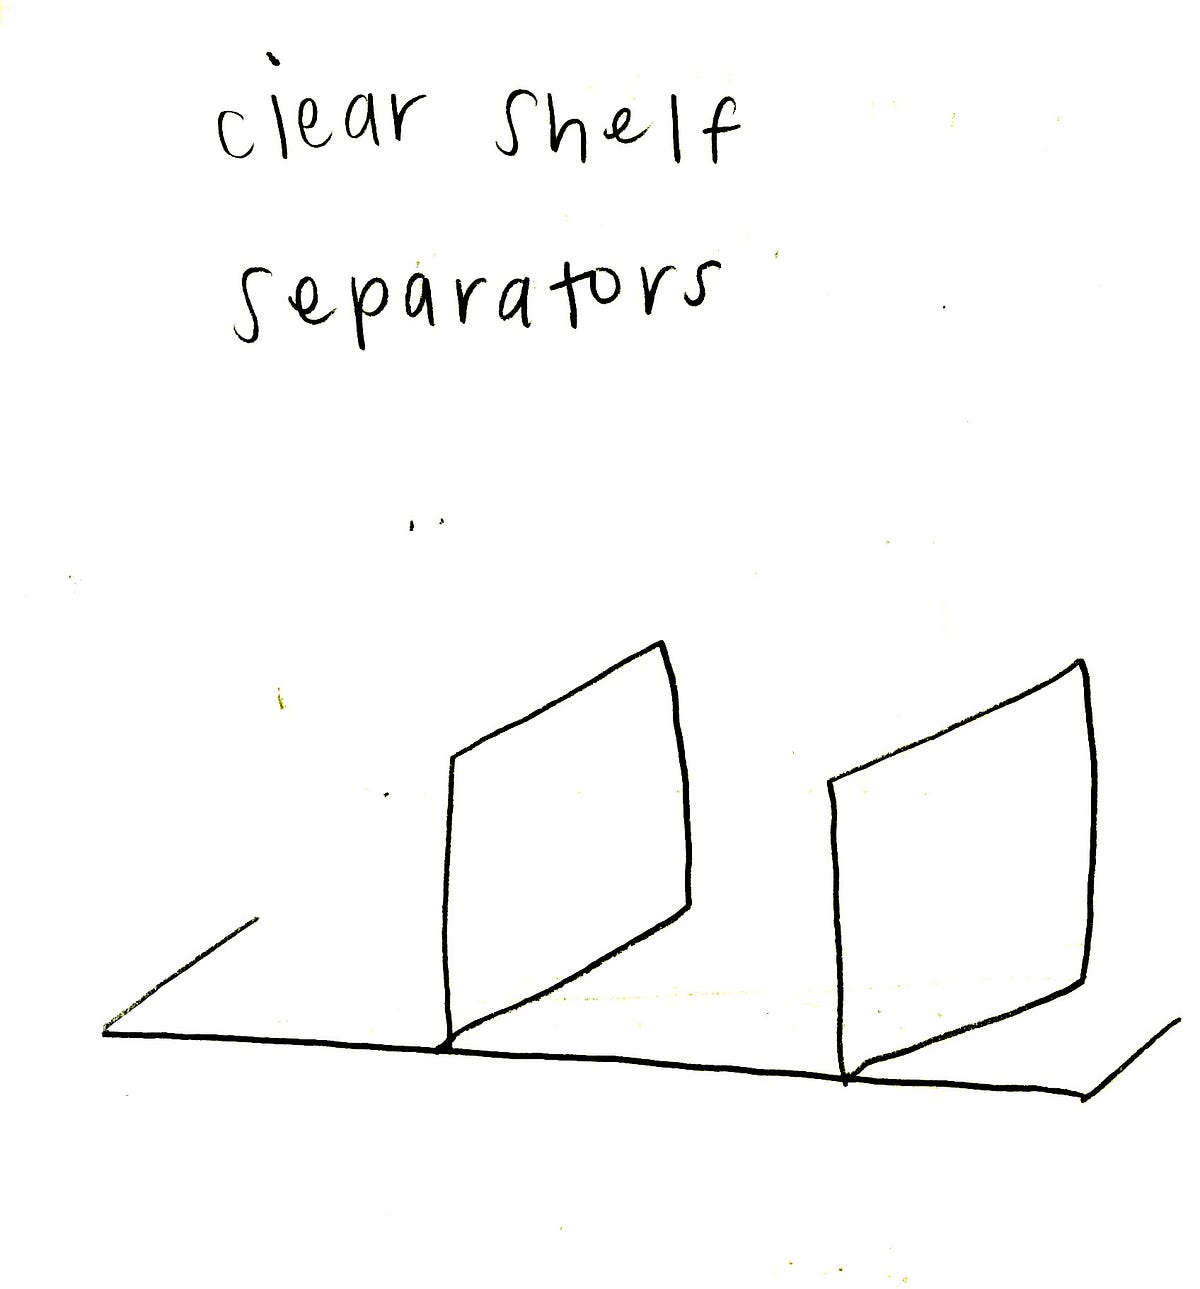 clear shelf
separators